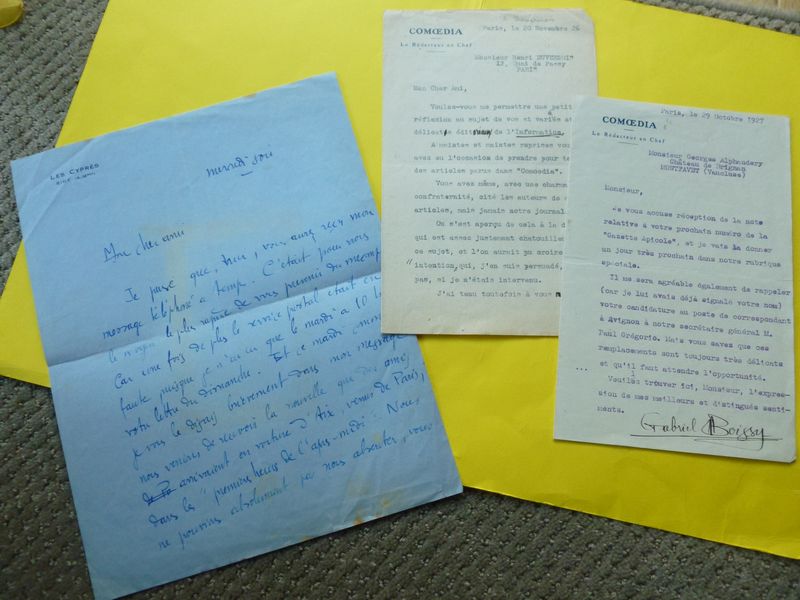 LES CYPRÈS
mercredi soir
Mon cher ami
Je pense que, hier, vous aurez reçu mon
message téléphoné à temps. C'était pour nous
le moyen le plus rapide de vous prévenir du
Car une fois de plus le service postal était en
faute puisque je n'ai eu que le mardi à 10 h
votre lettre du dimanche. Et ce mardi, comme
je vous le disais brièvement dans mon message
nous venions de recevoir la nouvelle que des amis
arrivaient en voiture d'Aix, venus de Paris,
dans les premières heures de l'après-midi. Nous
ne pouvions absolument pas nous absenter, vous
COMŒDIA
Le Rédacteur en Chef
Paris, le 20 Novembre 26
Monsieur Henri DUVERNOIS
12, Quai de Passy
PARIS
Mon Cher Ami,
Voulez-vous me permettre une petit
réflexion au sujet de vos si variés et
délicats de l'Information.
A maintes et maintes reprises vous
avez eu l'occasion de prendre pour
des articles parus dans "Comoedia".
Vous avez même, avec une charman
confraternité, cité les auteurs de
articles, mais jamais notre journal
On s'est aperçu de cela à la d
qui est assez justement chatouilleu
ce sujet, et l'on aurait pu croire
intention, qui, j'en suis persuadé,
pas, et je n'étais intervenu.
J'ai tenu toutefois à vous
COMŒDIA
Le Rédacteur en Chef
Paris, le 29 Octobre 1927
Monsieur Georges Alphandery
Château de Brignan
MONTFAVET (Vaucluse)
Monsieur,
Je vous accuse réception de la note
relative à votre prochain numéro de la
"Gazette Apicole", et je vais la donner
un jour très prochain dans notre rubrique
spéciale.
Il me sera agréable également de rappeler
(car je lui avais déjà signalé votre nom)
votre candidature au poste de correspondant
à Avignon à notre secrétaire général M.
Paul Grégorio. Mais vous savez que ces
remplacements sont toujours très délicats
et qu'il faut attendre l'opportunité.
Veuillez trouver ici, Monsieur, l'expres-
sion de mes meilleurs et distingués senti-
ments.
Gabriel Boissy